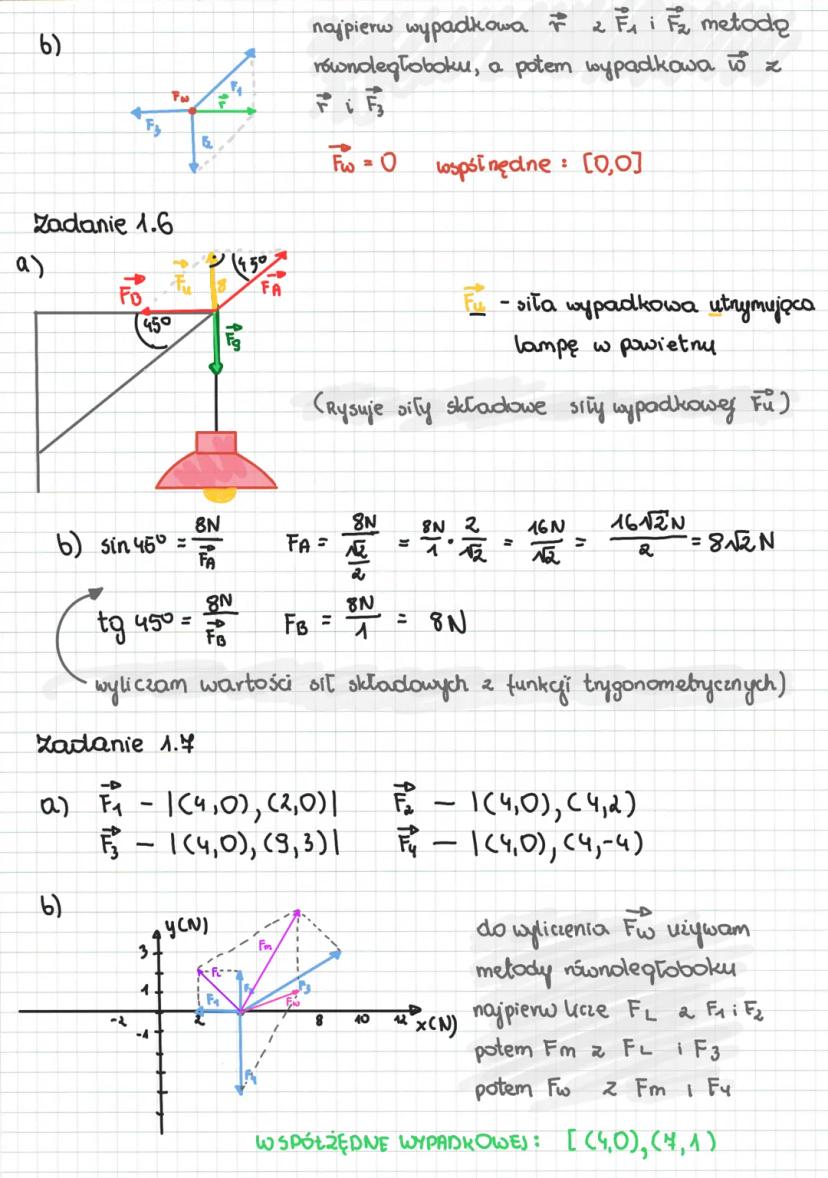 b)
najpierw wypadkowa r z F1 i F2 metodę
równoległoboku, a potem wypadkowa w z
r i F3
Fw
F1
r
F3
F2
Fw = 0 współrzędne : [0,0]
Zadanie 1.6
a)
45°
Fu
8
FA
FB
45°
Fg
Fu - siła wypadkowa utrzymująca
lampę w powietrzu
(Rysuje siły składowe siły wypadkowej Fu)
b) sin 45° = 8N/FA FA = 8N/(√2/2) = 8N/1 · 2/√2 = 16N/√2 = 16√2N/2 = 8√2 N
tg 45° = 8N/FB FB = 8N/1 = 8N
wyliczam wartości sił składowych z funkcji trygonometrycznych)
Zadanie 1.7
a) F1 - |(4,0), (2,0)| F2 - |(4,0), (4,2)
F3 - |(4,0), (9,3)| F4 - |(4,0), (4,-4)
b)
y(N)
3
1
-1
-2
2
8
10
12
x(N)
FL
Fm
F1
F2
F3
Fw
F4
do wyliczenia Fw używam
metody równoległoboku
najpierw liczę FL z F1 i F2
potem Fm z FL i F3
potem Fw z Fm i F4
WSPÓŁŻĘDNE WYPADKOWEJ: [(4,0), (7,1)